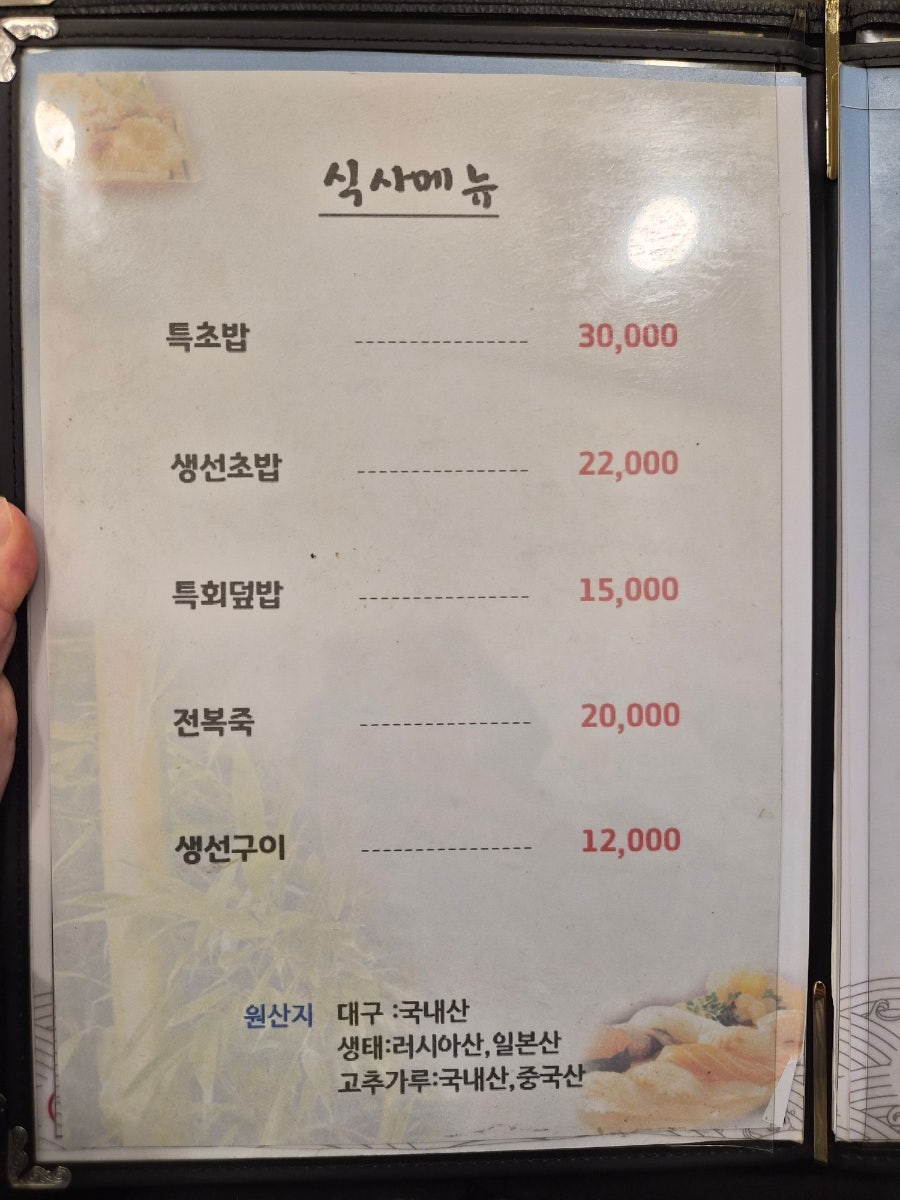 식사메뉴
특초밥 ---------------------- 30,000
생선초밥 ---------------------- 22,000
특회덮밥 ---------------------- 15,000
전복죽 ---------------------- 20,000
생선구이 ---------------------- 12,000
원산지 대구 :국내산
생태:러시아산,일본산
고추가루:국내산,중국산